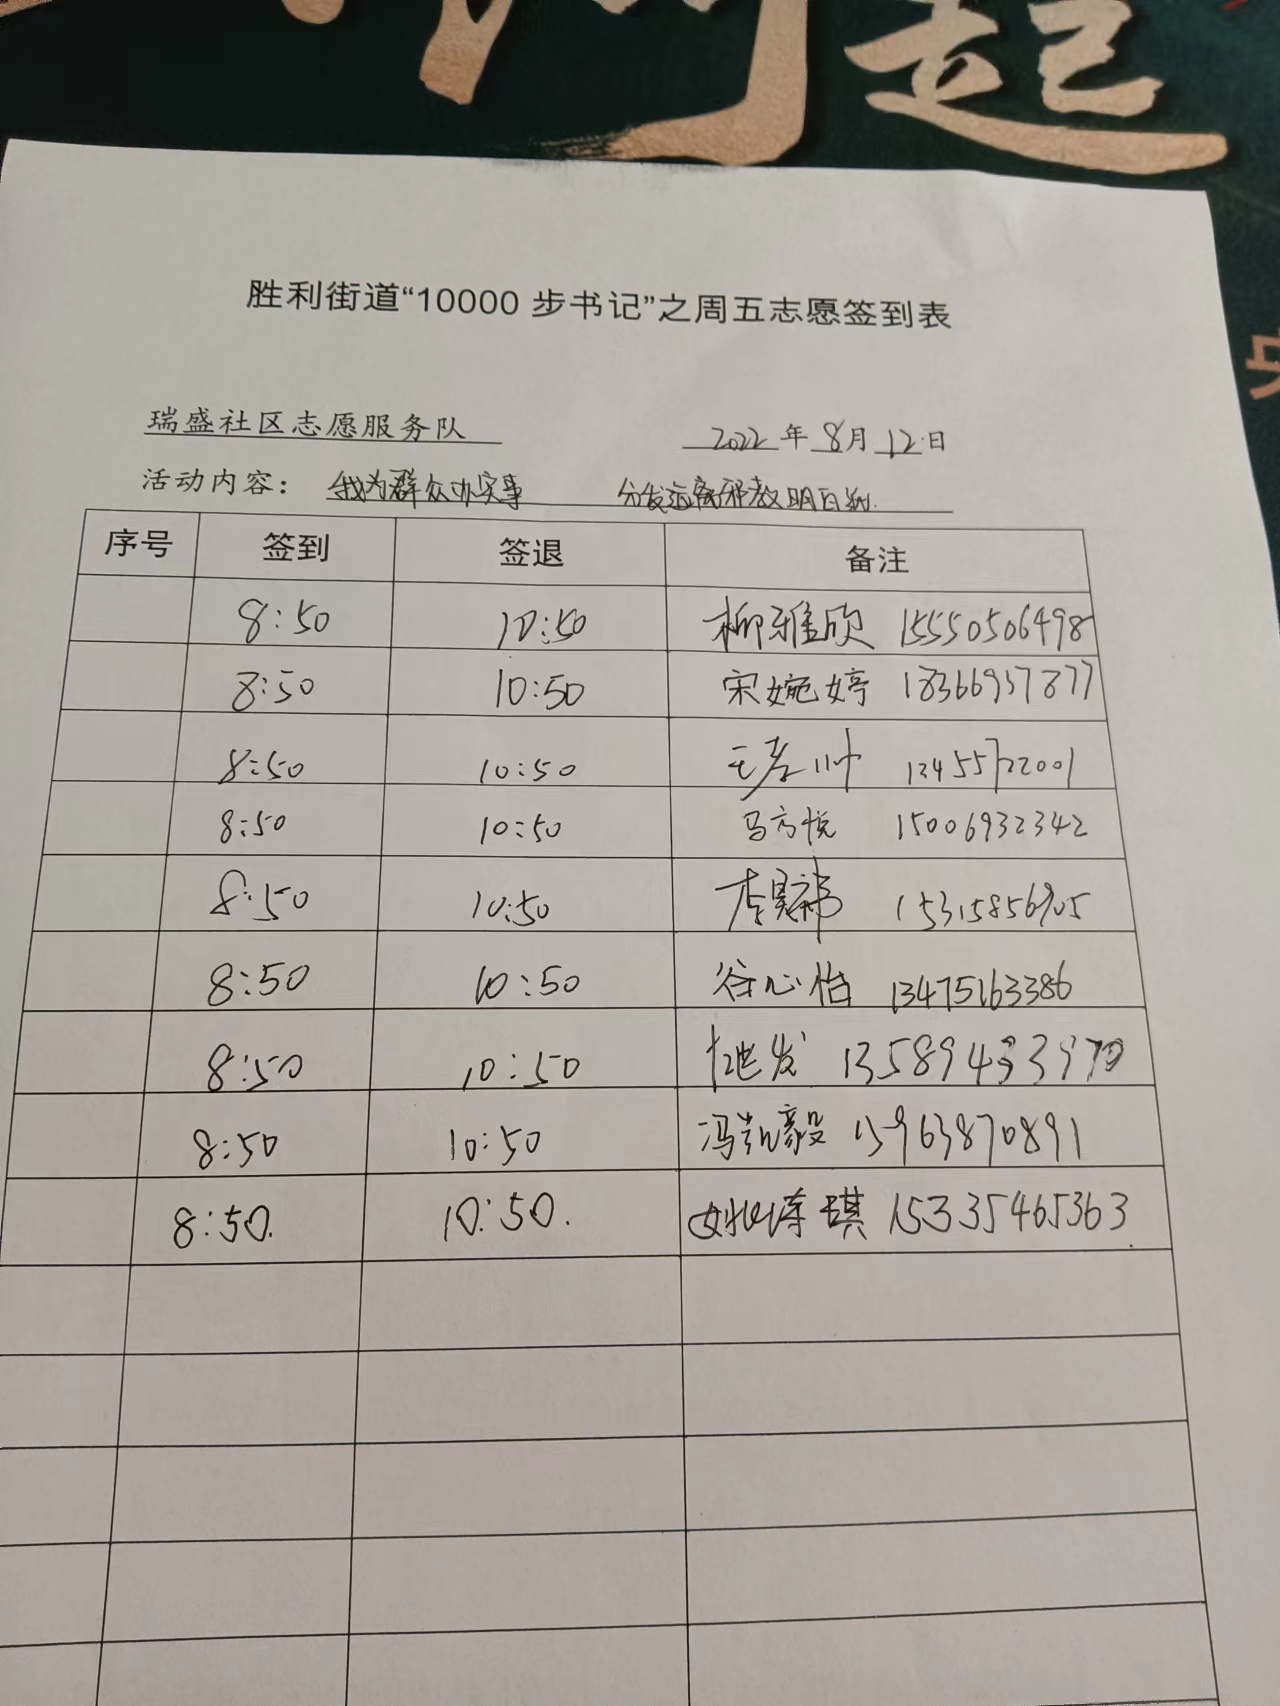 起
央
胜利街道“10000 步书记”之周五志愿签到表
瑞盛社区志愿服务队 2022 年 8 月 12 日
活动内容： 我为群众办实事 分发远离邪教明白纸.
序号 签到 签退 备注
8:50 10:50 柳雅欣 15550506498
8:50 10:50 宋婉婷 18366937877
8:50 10:50 王孝帅
8:50 10:50 马方悦 15006932342
8:50 10:50 李昊 15315856905
8:50 10:50 谷心怡 13475163386
8:50 10:50 发 13589433970
8:50 10:50 冯凯毅 15963870891
8:50. 10:50. 姚琇琪 15335465363